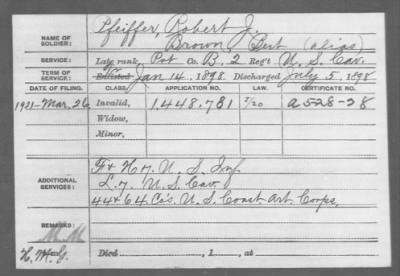 NAME OF SOLDIER: Pfeiffer, Robert J.
Brown, Bert (alias)
SERVICE: Late rank, Pvt Co. B, 2 Reg't U. S. Cav.
TERM OF SERVICE: Enlisted Jan 14, 1898. Discharged July 5, 1898
DATE OF FILING. CLASS. APPLICATION NO. LAW. CERTIFICATE NO.
1921-Mar. 26 Invalid, 1,448,781 7/20 a 528-28
Widow,
Minor,
ADDITIONAL SERVICES: F & H 7. U. S. Inf.
L. 7. U. S. Cav.
44 & 64 Cos. U. S. Coast Art. Corps.
REMARKS:
M. M.
H. M. G. Died , 1 , at